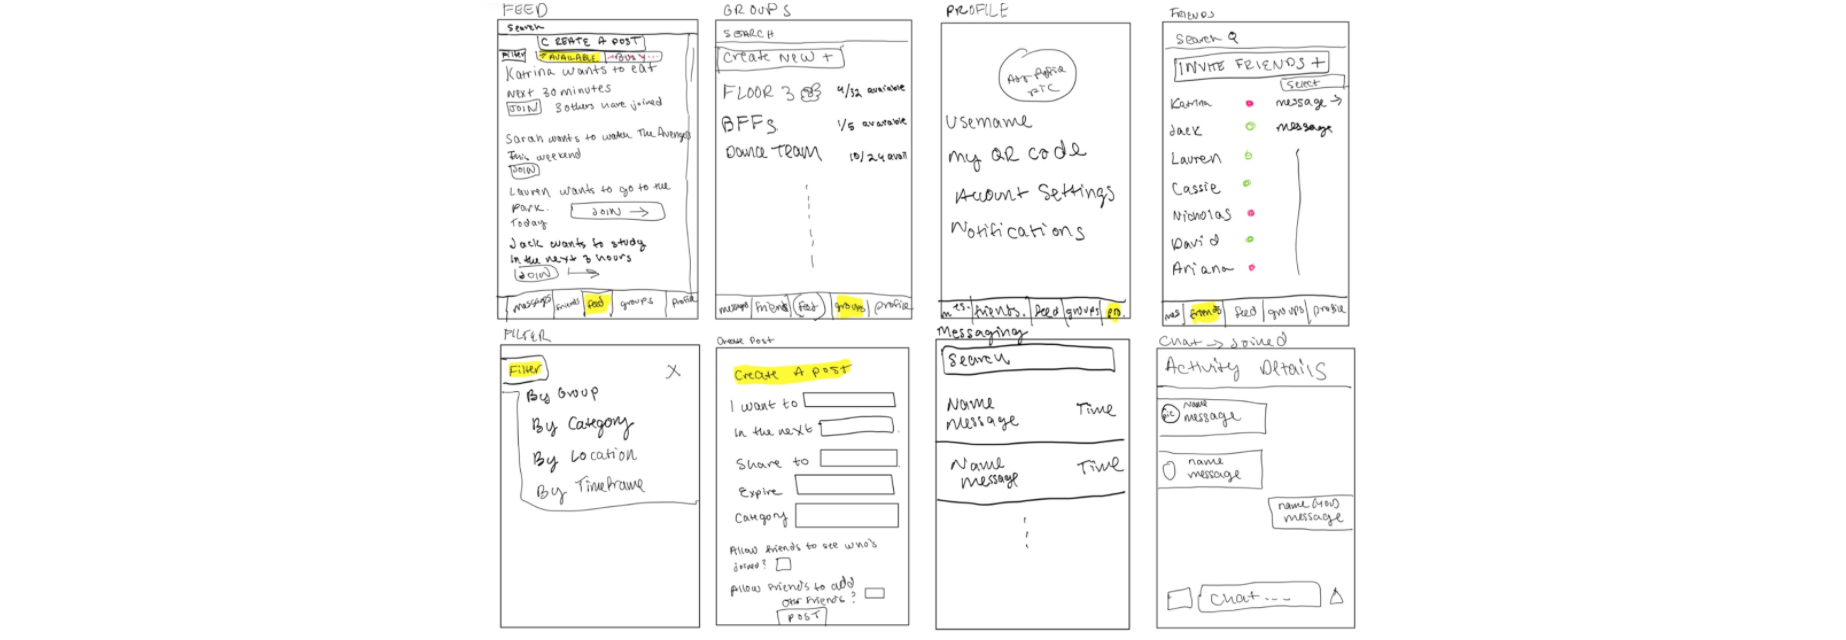 FEED
Search
CREATE A POST
Filter
AVAILABLE
BUSY...
Katrina wants to eat
next 30 minutes
JOIN 3 others have joined
Sarah wants to watch The Avengers
This weekend
JOIN
Lauren wants to go to the
park.
JOIN →
Today
Jack wants to study
in the next 3 hours
JOIN
messages friends feed groups profile
GROUPS
SEARCH
Create New +
FLOOR 3 4/32 available
BFFs 1/5 available
Dance Team 10/24 avail
messages friends feed groups profile
PROFILE
pic
Username
My QR code
Account Settings
Notifications
friends. feed groups pro.
FRIENDS
Search
INVITE FRIENDS +
Select
Katrina message →
Jack message
Lauren
Cassie
Nicholas
David
Ariana
mes friends feed groups profile
FILTER
Filter X
By Group
By Category
By Location
By Timeframe
Create Post
Create A post
I want to
In the next
Share to
Expire
Category
Allow friends to see who's
joined?
Allow friends to add
other friends?
POST
Messaging
Search
Name Time
message
Name Time
message
Chat → Joined
Activity Details
pic Name
message
name
message
name (you)
message
Chat...